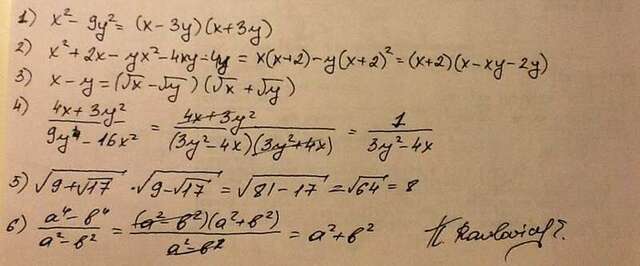 1) x² - 9y² = (x - 3y)(x + 3y)
2) x² + 2x - yx² - 4xy - 4y = x(x+2) - y(x+2)² = (x+2)(x - xy - 2y)
3) x - y = (√x - √y)(√x + √y)
4) (4x + 3y²)/(9y⁴ - 16x²) = (4x + 3y²)/((3y² - 4x)(3y² + 4x)) = 1/(3y² - 4x)
5) √(9 + √17) · √(9 - √17) = √(81 - 17) = √64 = 8
6) (a⁴ - b⁴)/(a² - b²) = ((a² - b²)(a² + b²))/(a² - b²) = a² + b²